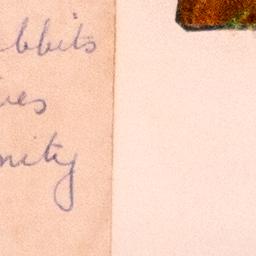 abbits
ves
nity